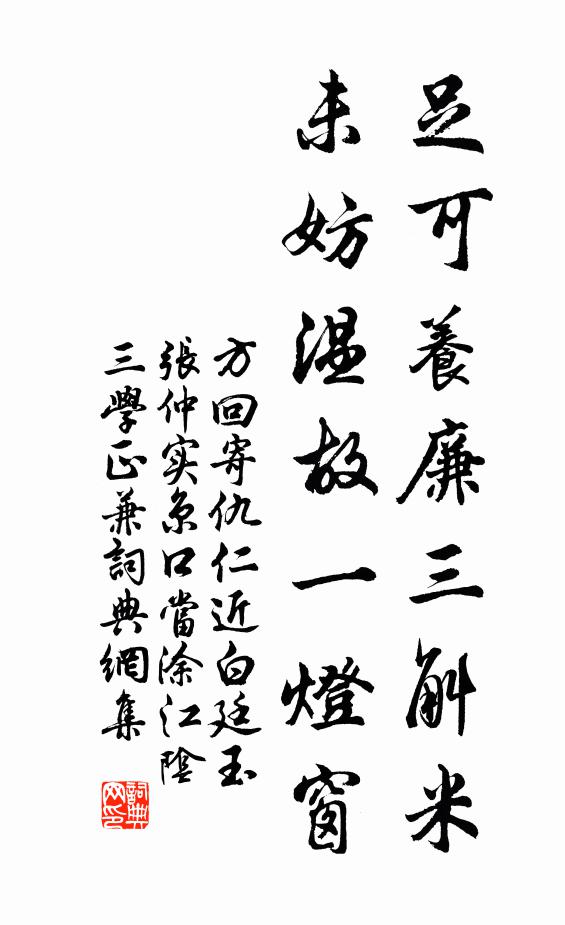 足可養廉三斛米
未妨温故一燈窗
方回寄仇仁近白廷玉
張仲实京口當涂江陰
三學正兼詞典網集
詞典网印